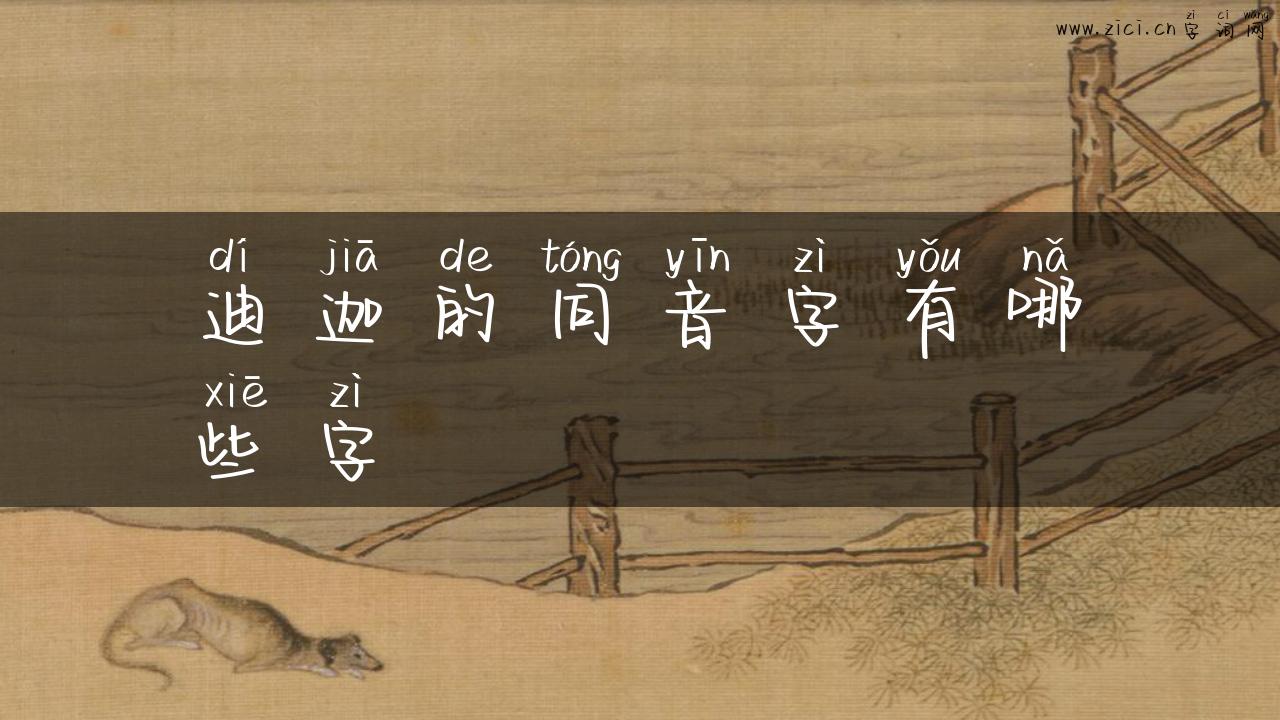 zì cí wǎng
www.zici.cn 字词网
dí jiā de tóng yīn zì yǒu nǎ
迪迦的同音字有哪
xiē zì
些字